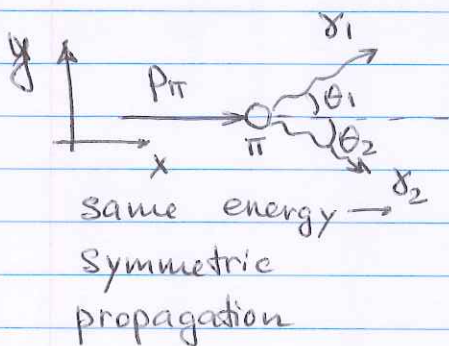 y
γ1
Pπ
θ1
π
θ2
x
γ2
same energy →
symmetric
propagation